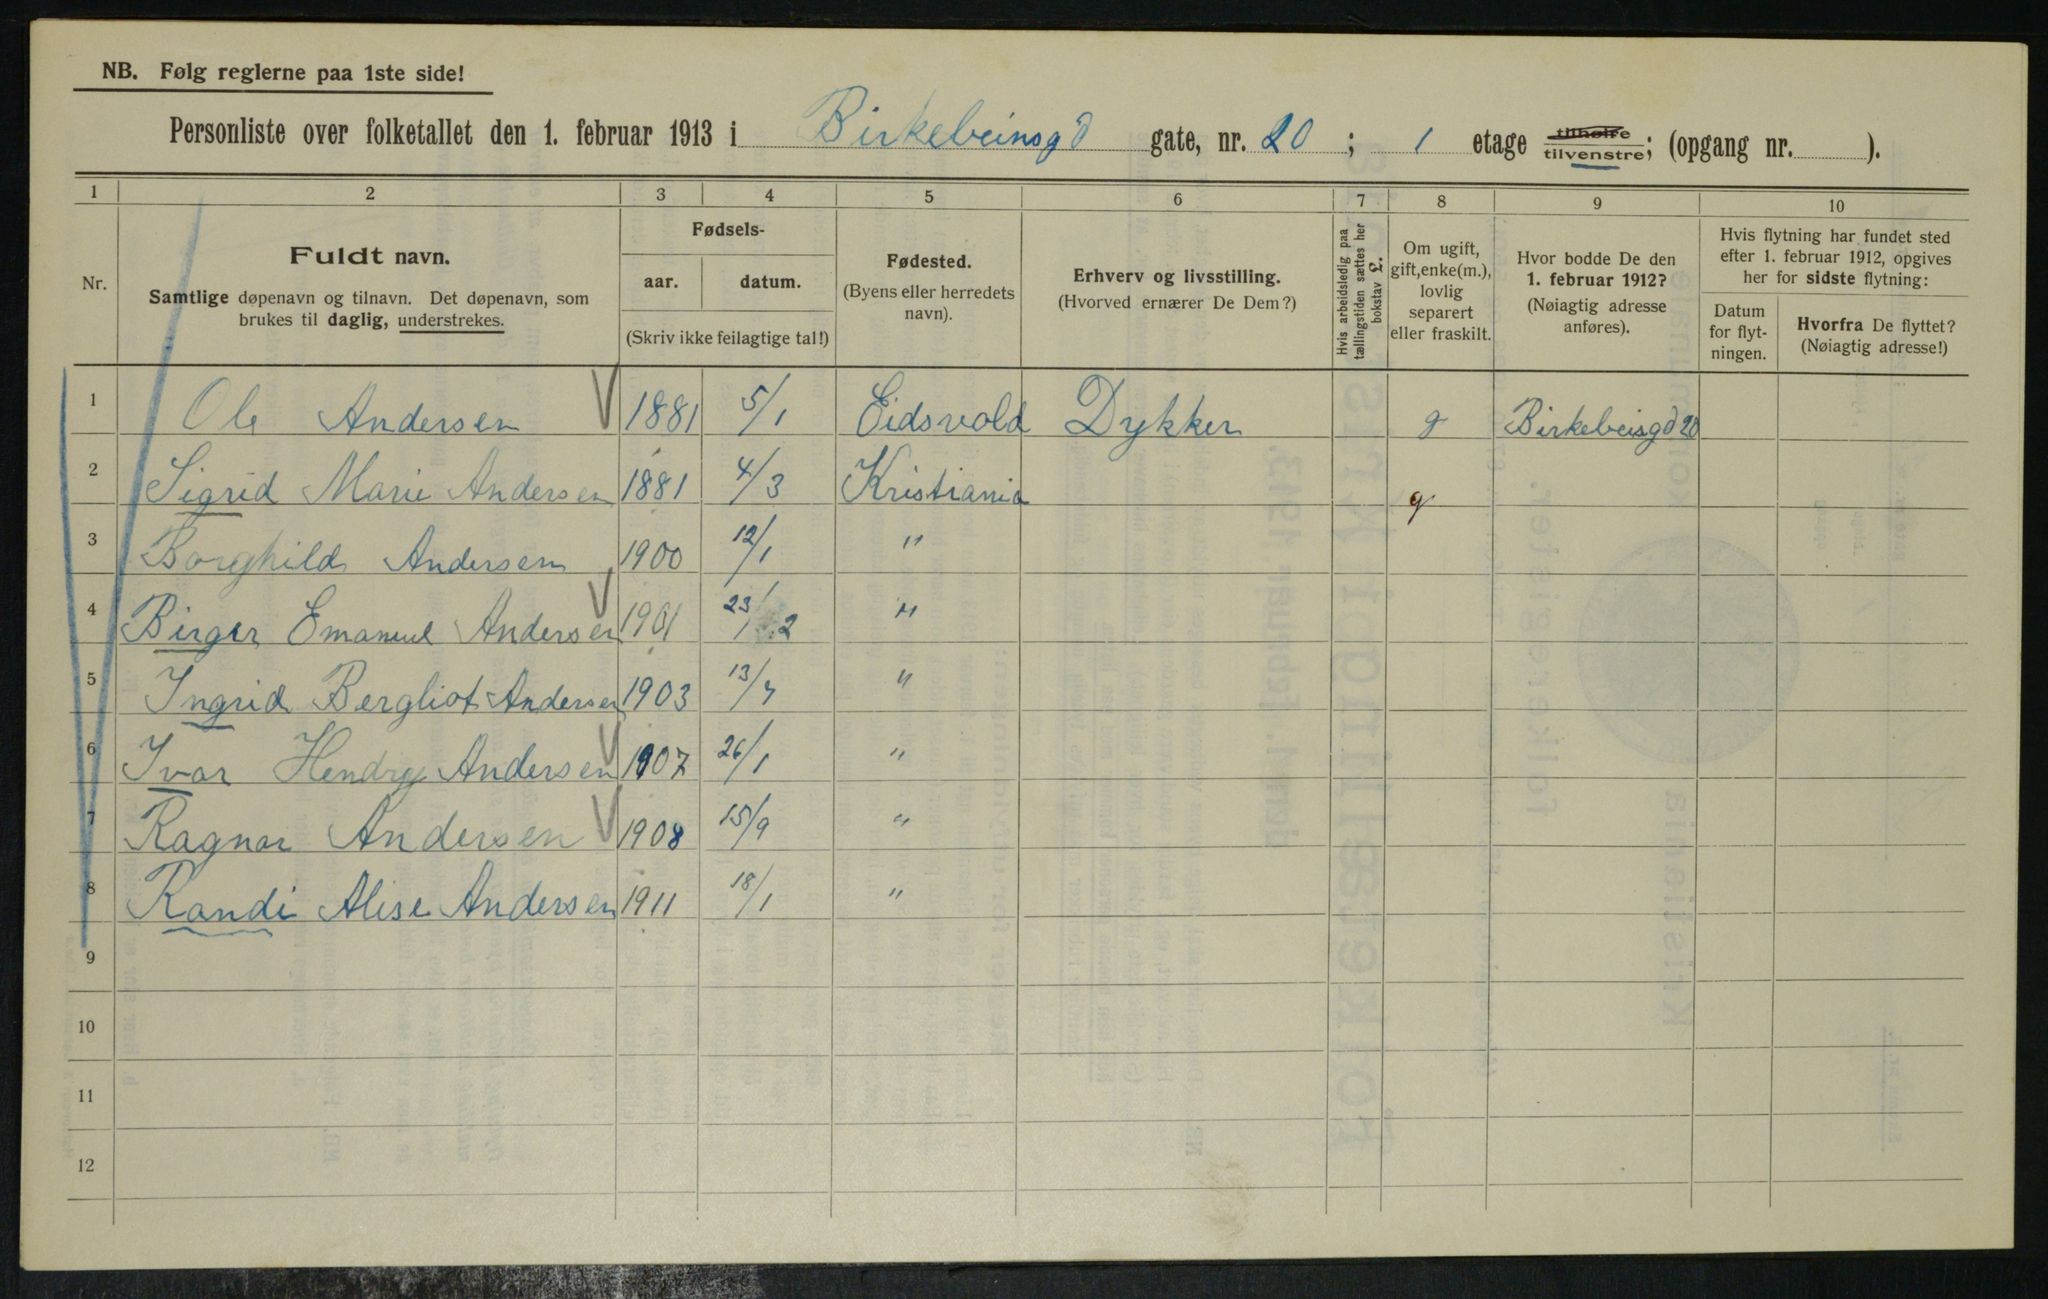 NB. Følg reglerne paa 1ste side!
Personliste over folketallet den 1. februar 1913 i Birkebeinsgd gate, nr. 20 ; 1 etage tilhøire tilvenstre; (opgang nr. ).
1 2 3 4 5 6 7 8 9 10
Nr.
Fuldt navn.
Samtlige døpenavn og tilnavn. Det døpenavn, som
brukes til daglig, understrekes.
Fødsels-
aar. datum.
(Skriv ikke feilagtige tal!)
Fødested.
(Byens eller herredets
navn).
Erhverv og livsstilling.
(Hvorved ernærer De Dem?)
Hvis arbeidsledig paa
tællingstiden sættes her
bokstav L.
Om ugift,
gift, enke(m.),
lovlig
separert
eller fraskilt.
Hvor bodde De den
1. februar 1912?
(Nøiagtig adresse
anføres).
Hvis flytning har fundet sted
efter 1. februar 1912, opgives
her for sidste flytning:
Datum
for flyt-
ningen.
Hvorfra De flyttet?
(Nøiagtig adresse!)
1 Ole Andersen 1881 5/1 Eidsvold Dykker g Birkebeisgd 20
2 Sigrid Marie Andersen 1881 4/3 Kristiania g
3 Borghild Andersen 1900 12/1 "
4 Birger Emanuel Andersen 1901 23/2 "
5 Ingrid Bergliot Andersen 1903 13/7 "
6 Ivar Hendry Andersen 1907 26/1 "
7 Ragnar Andersen 1908 15/9 "
8 Randi Alise Andersen 1911 18/1 "
9
10
11
12